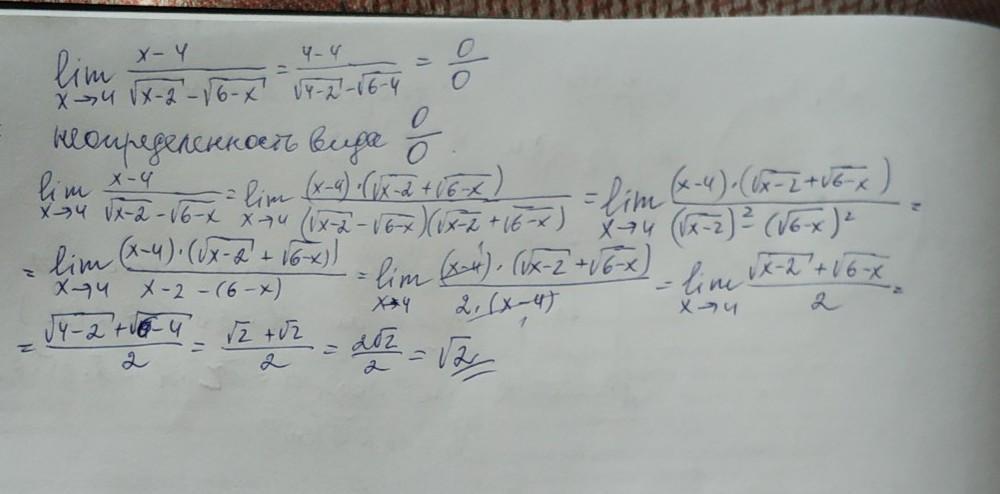 lim x→4 (x-4)/(√(x-2) - √(6-x)) = (4-4)/(√(4-2) - √(6-4)) = 0/0
неопределенность вида 0/0.
lim x→4 (x-4)/(√(x-2) - √(6-x)) = lim x→4 ((x-4)·(√(x-2) + √(6-x)))/((√(x-2) - √(6-x))(√(x-2) + √(6-x))) = lim x→4 ((x-4)·(√(x-2) + √(6-x)))/((√(x-2))² - (√(6-x))²) =
= lim x→4 ((x-4)·(√(x-2) + √(6-x)))/(x-2-(6-x)) = lim x→4 ((x-4)·(√(x-2) + √(6-x)))/(2·(x-4)) = lim x→4 (√(x-2) + √(6-x))/2 =
= (√(4-2) + √(6-4))/2 = (√2 + √2)/2 = 2√2/2 = √2